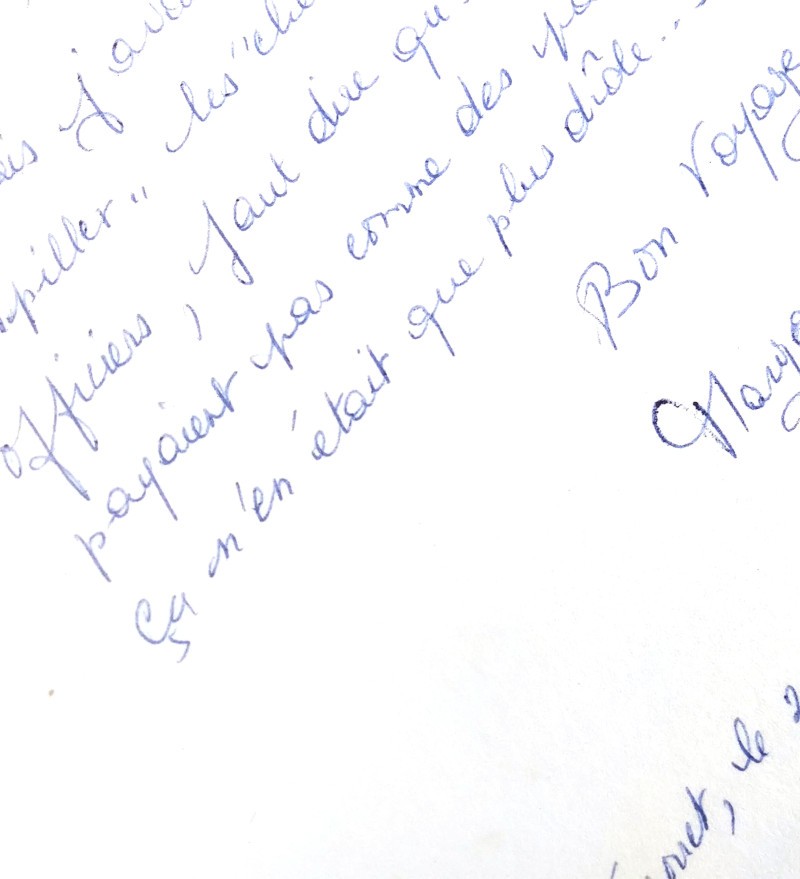 j'avai
piller" les "che
officiers, faut dire qu
payaient pas comme des
ça n'en était que plus drôle...
Bon Voyage
le 2